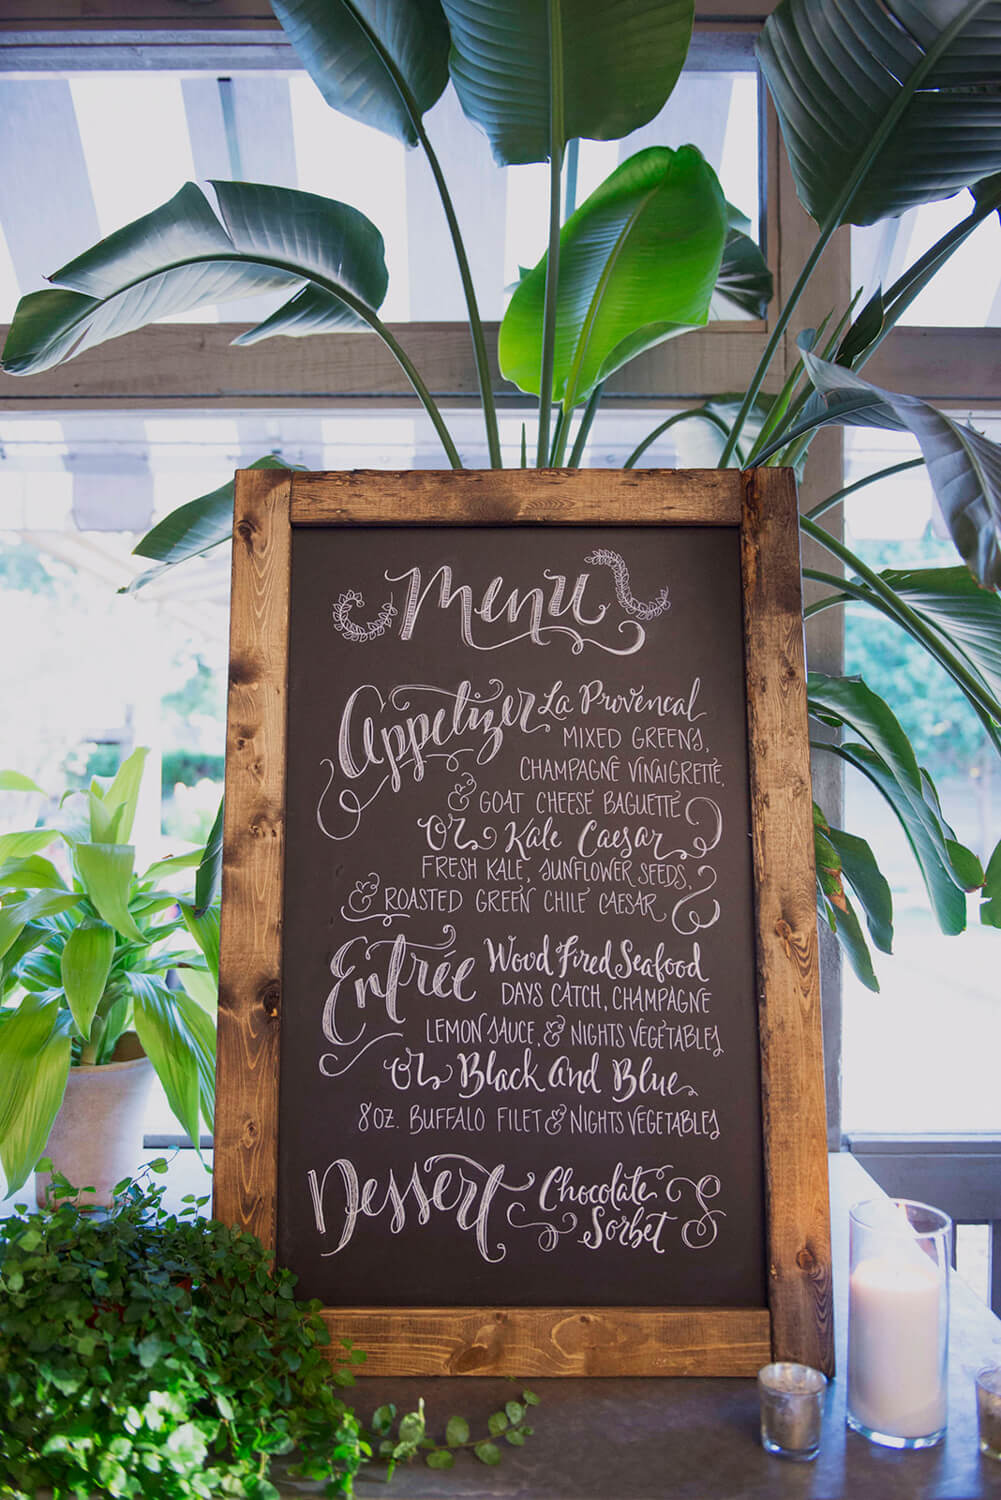 Menu
Appetizer La Provencal
MIXED GREENS,
CHAMPAGNE VINAIGRETTE,
& GOAT CHEESE BAGUETTE
Or Kale Caesar
FRESH KALE, SUNFLOWER SEEDS,
& ROASTED GREEN CHILE CAESAR
Entrée Wood Fired Seafood
DAYS CATCH, CHAMPAGNE
LEMON SAUCE, & NIGHTS VEGETABLES
Or Black And Blue
8 OZ. BUFFALO FILET & NIGHTS VEGETABLES
Dessert Chocolate
Sorbet